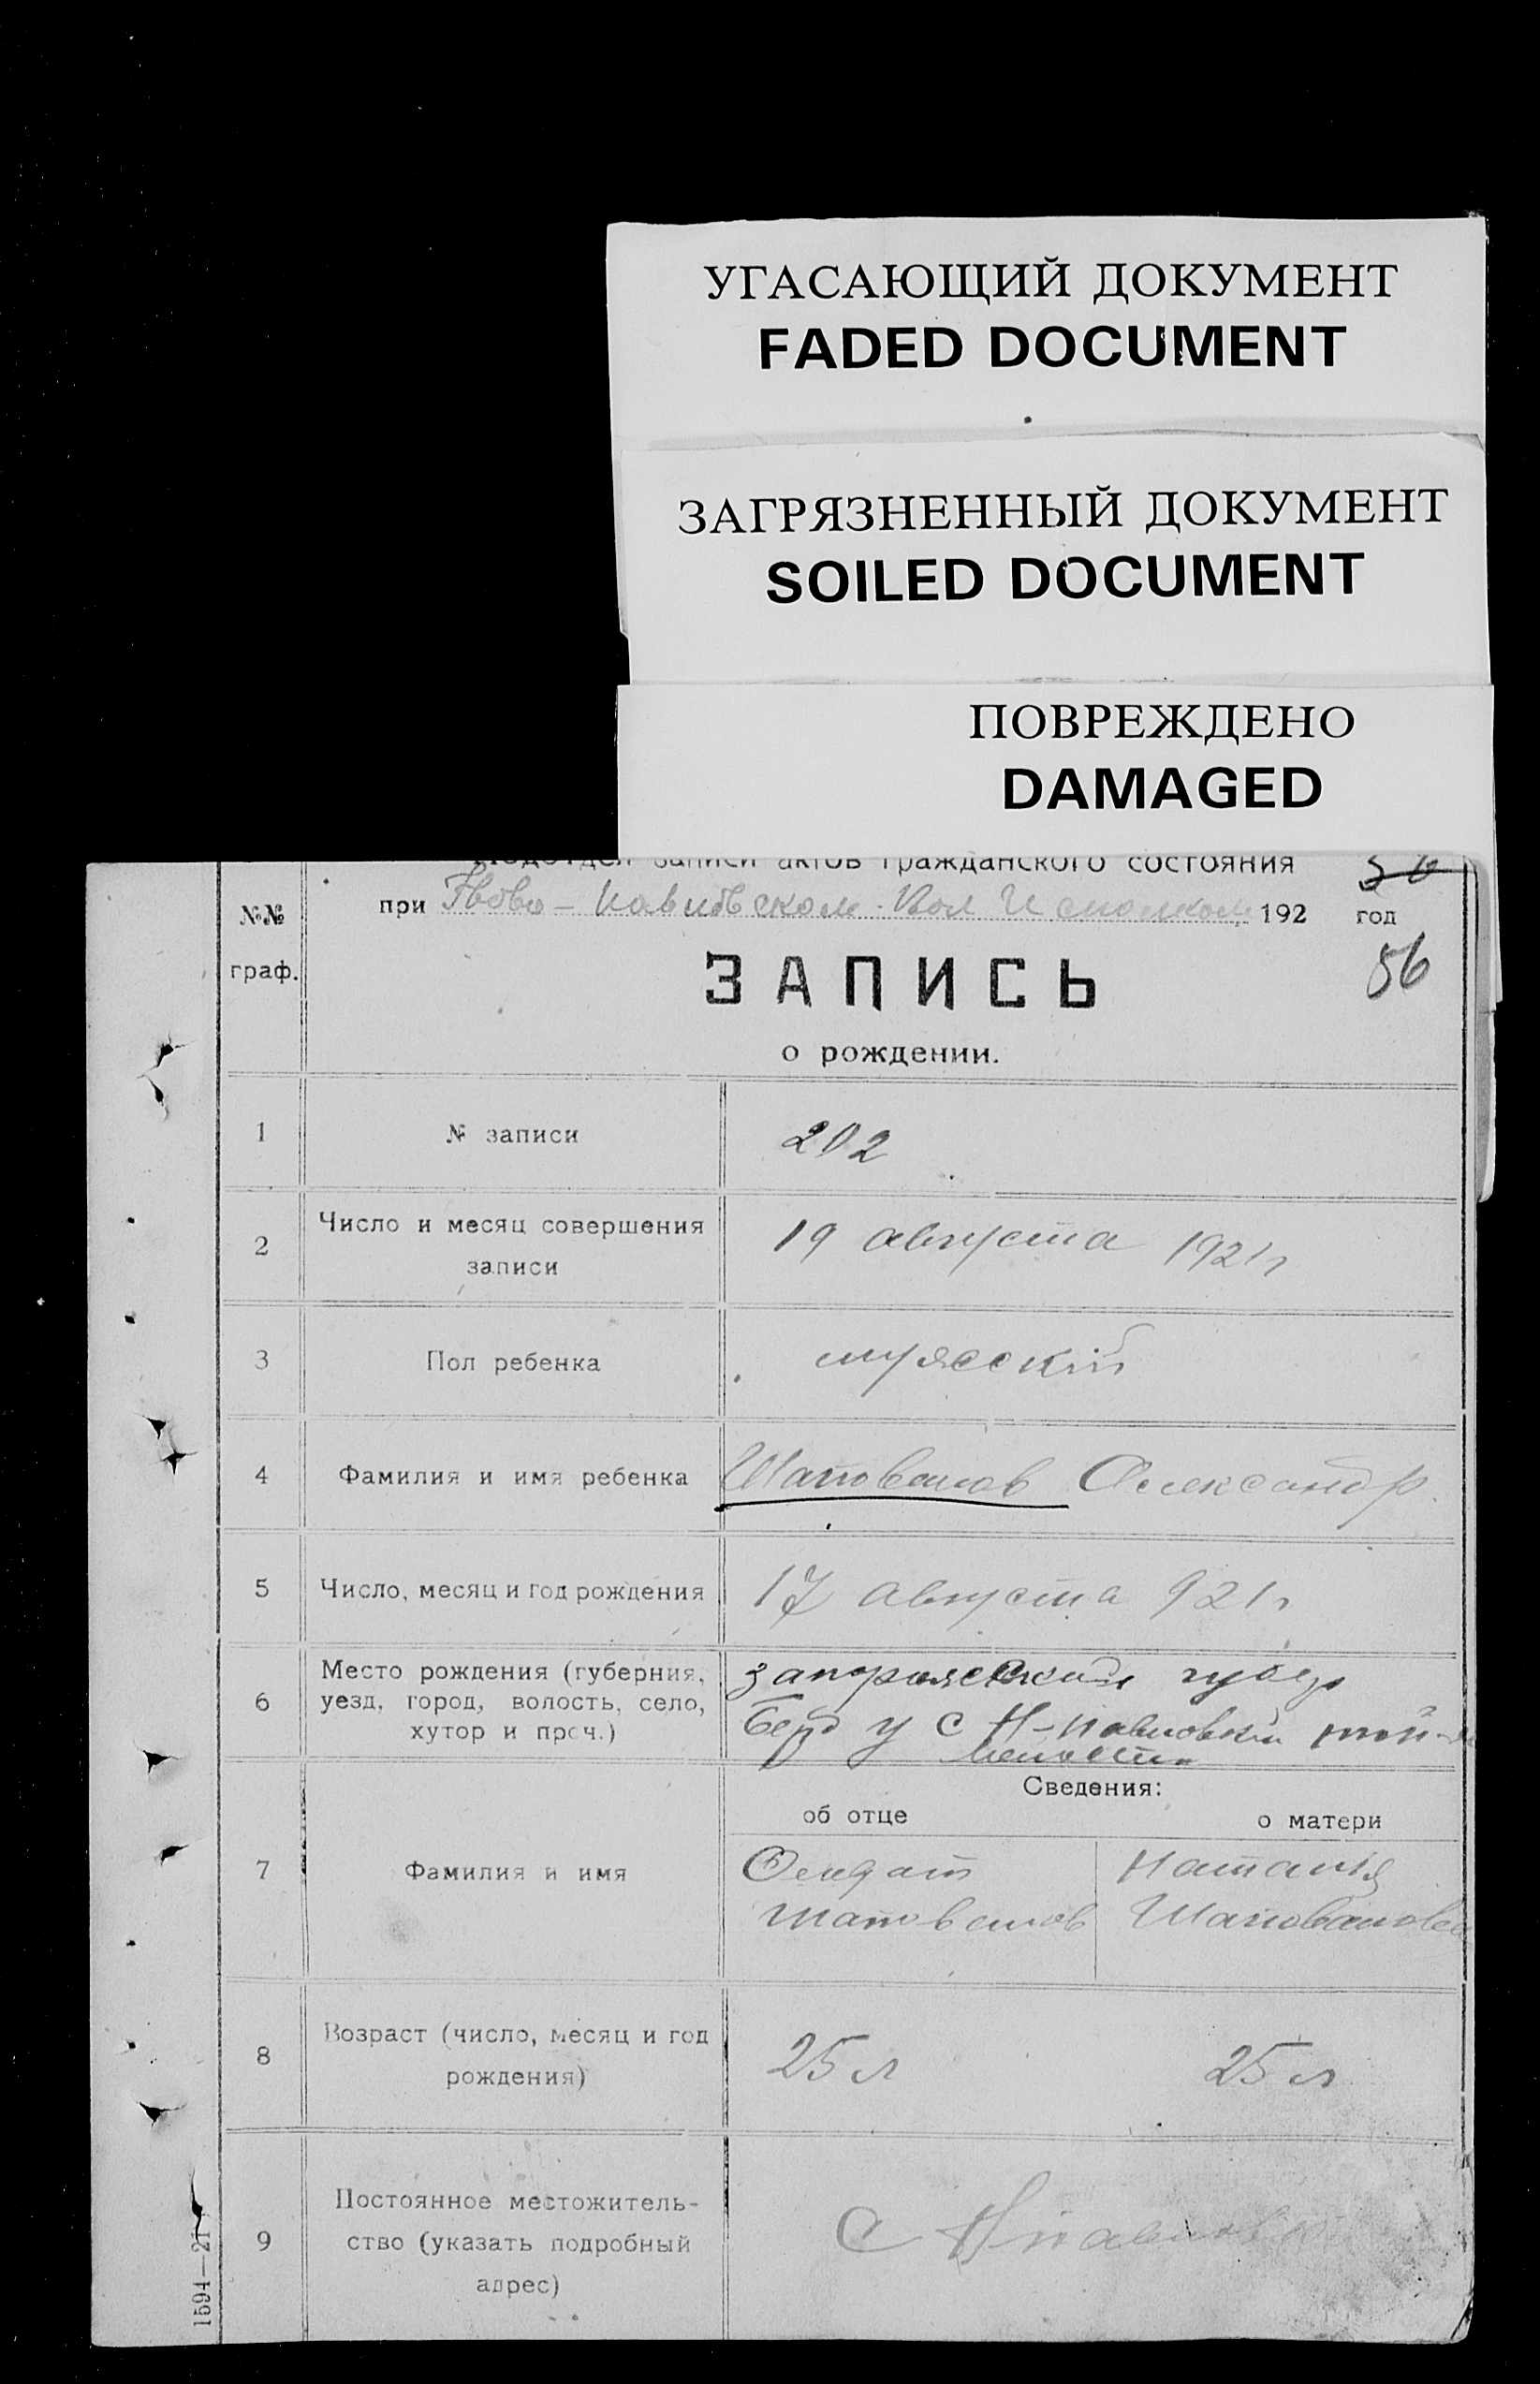 УГАСАЮЩИЙ ДОКУМЕНТ
FADED DOCUMENT
ЗАГРЯЗНЕННЫЙ ДОКУМЕНТ
SOILED DOCUMENT
ПОВРЕЖДЕНО
DAMAGED
Подотдел записи актов гражданского состояния
№№ граф.
при Ново-Павловском Вол Исполком 192 год
56
ЗАПИСЬ
о рождении.
1 № записи 202
2 Число и месяц совершения 19 августа 1921г
записи
3 Пол ребенка мужской
4 Фамилия и имя ребенка Шаповалов Александр
5 Число, месяц и год рождения 17 августа 921г
Место рождения (губерния,
6 уезд, город, волость, село, Берд у с Н-Павловки
хутор и проч.) волости
Сведения:
об отце о матери
7 Фамилия и имя Наталія
Шаповалов Шаповалова
8 Возраст (число, месяц и год 25 л 25 л
рождения)
Постоянное местожитель-
9 ство (указать подробный с Н Павловка
адрес)
1594—21